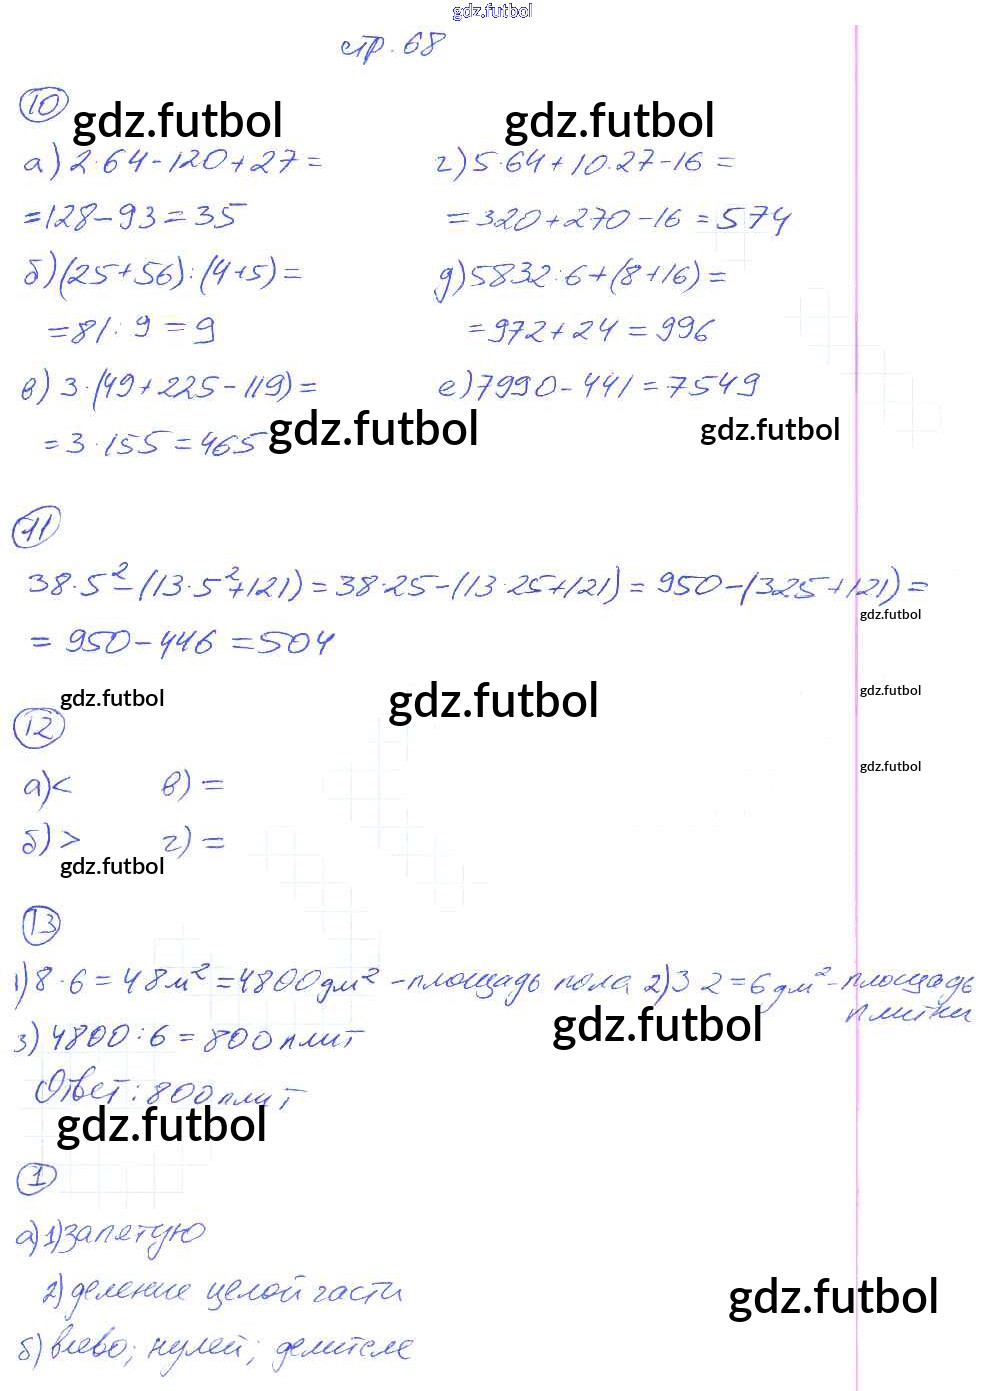 gdz.futbol
стр. 68
10
gdz.futbol gdz.futbol
а) 2·64-120+27=
=128-93=35
б) (25+56):(4+5)=
=81:9=9
в) 3·(49+225-119)=
=3·155=465
г) 5·64+10·27-16=
=320+270-16=574
д) 5832:6+(8+16)=
=972+24=996
е) 7990-441=7549
gdz.futbol gdz.futbol
11
38·5²-(13·5²+121)=38·25-(13·25+121)=950-(325+121)=
=950-446=504
gdz.futbol
gdz.futbol gdz.futbol gdz.futbol
12
а) < в) =
gdz.futbol
б) > г) =
gdz.futbol
13
1) 8·6=48м²=4800дм² -площадь пола 2) 3 2=6дм²-площадь
плитки
gdz.futbol
3) 4800:6=800плит
Ответ: 800плит
gdz.futbol
1
а) 1) запятую
2) деление целой части
gdz.futbol
б) влево; нулей; делителе